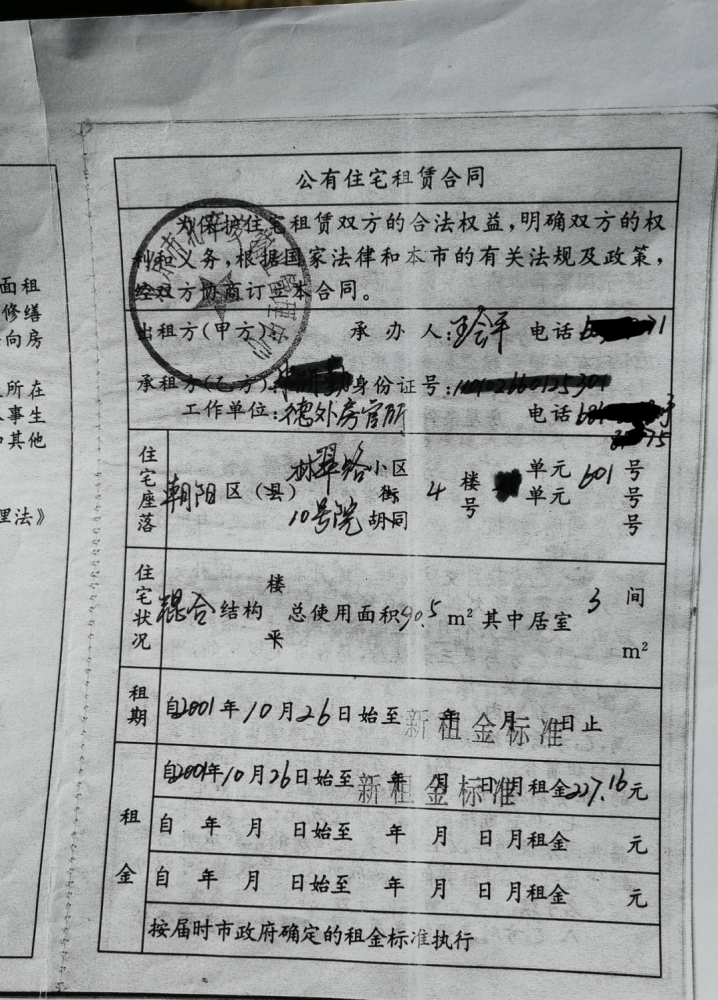 面租
修缮
向房
所在
事生
其他
理法》
公有住宅租赁合同
为保护住宅租赁双方的合法权益，明确双方的权
利和义务，根据国家法律和本市的有关法规及政策，
经双方协商订立本合同。
出租方(甲方)： 承办人： 电话
承租方(乙方)： 身份证号：
工作单位：德外房管所 电话
住宅座落
朝阳区(县) 林翠路小区 4 楼 单元 601 号
街 号 单元 号
10号院 胡同 号
住宅状况
混合结构 楼 总使用面积90.5 m² 其中居室 3 间
平 m²
租期
自2001年10月26日始至 年 月 日止
新租金标准
租金
自2001年10月26日始至 年 月 日月租金227.16元
新租金标准
自 年 月 日始至 年 月 日月租金 元
自 年 月 日始至 年 月 日月租金 元
按届时市政府确定的租金标准执行